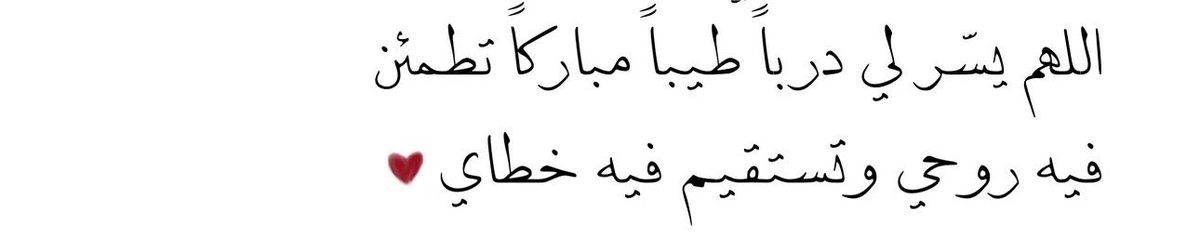 اللهم يسّر لي درباً طيباً مباركاً تطمئن
فيه روحي وتستقيم فيه خطاي ♥